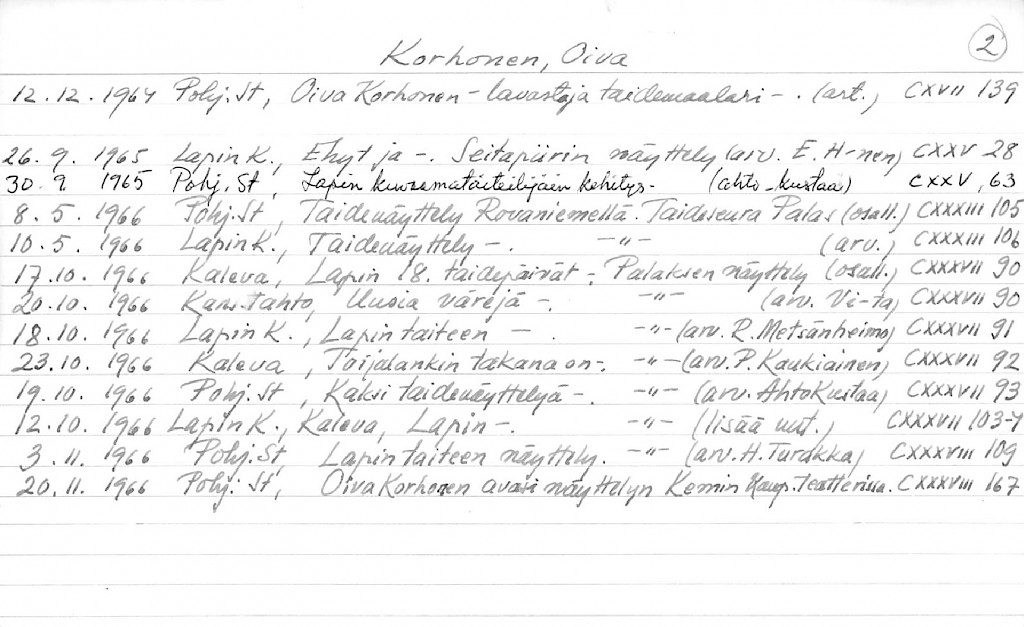 2
Korhonen, Oiva
12.12.1964 Pohj.St, Oiva Korhonen - lavastaja taidemaalari -. (art.) CXVII 139
26.9. 1965 Lapin K., Ehyt ja -. Seitapiirin näyttely (arv. E. H-nen) CXXV 28
30.9 1965 Pohj.St, Lapin kuvaamataiteilijain kehitys- (ahto-kustaa) CXXV, 63
8.5. 1966 Pohj.St, Taidenäyttely Rovaniemellä. Taideseura Palas (osall.) CXXXIII 105
10.5. 1966 Lapin K., Taidenäyttely -. -"- (arv.) CXXXIII 106
17.10. 1966 Kaleva, Lapin 18. taidepäivät -. Palaksen näyttely (osall.) CXXXVII 90
20.10. 1966 Kans.tahto, Uusia värejä -. -"- (arv. Vi-ta) CXXXVII 90
18.10. 1966 Lapin K., Lapin taiteen - -"- (arv. R. Metsänheimo) CXXXVII 91
23.10. 1966 Kaleva, takana on -. -"- (arv. P. Kaukiainen) CXXXVII 92
19.10. 1966 Pohj.St, Kaksi taidenäyttelyä -. -"- (arv. Ahto Kustaa) CXXXVII 93
12.10. 1966 Lapin K., Kaleva, Lapin -. -"- (lisää uut.) CXXXVII 103-4
3.11. 1966 Pohj.St, Lapin taiteen näyttely. -"- (arv. H. Turakka) CXXXVIII 109
20.11. 1966 Pohj. St, Oiva Korhonen avasi näyttelyn Kemin Kaup.teatterissa. CXXXVIII 167